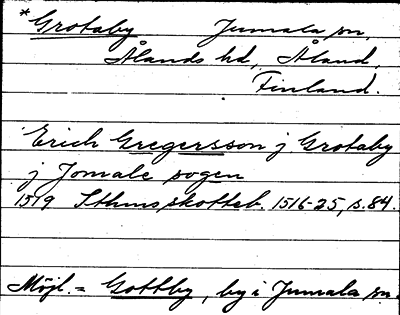 *Grotaby Jumala sn,
Ålands hd, Åland,
Finland.
Erich Gregersson j Grotaby
j Jomale sogen
1519 Sthmsskotteb. 1516-25, s. 84.
Möjl. = Gottby, by i Jumala sn.